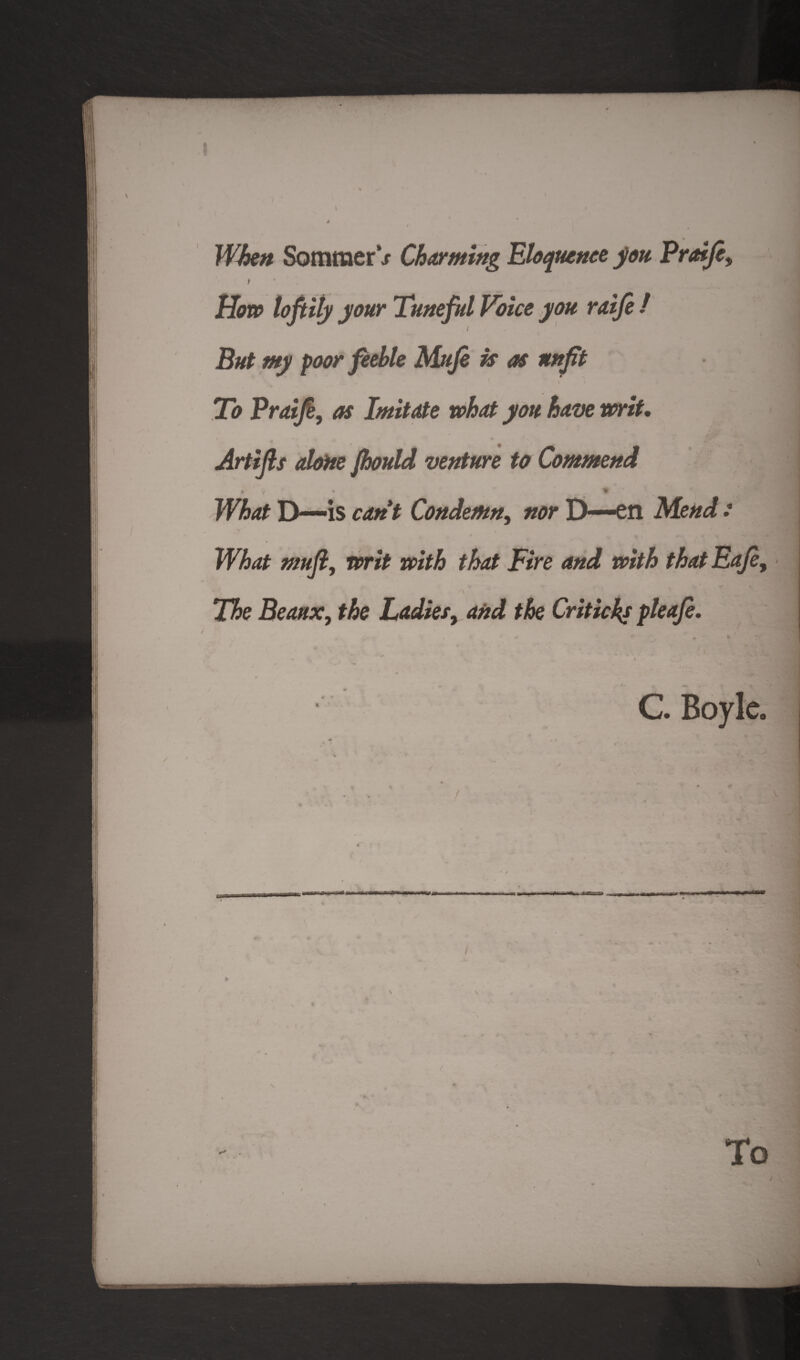 When Sommer's Charming Eloquence you Praiſe,
How loftily your Tuneful Voice you raiſe !
But my poor feeble Muſe is as unfit
To Praiſe, as Imitate what you have writ.
Artiſts alone ſhould venture to Commend
What D—is can't Condemn, nor D—en Mend :
What muſt, writ with that Fire and with that Eaſe,
The Beaux, the Ladies, and the Criticks pleaſe.
C. Boyle.
To